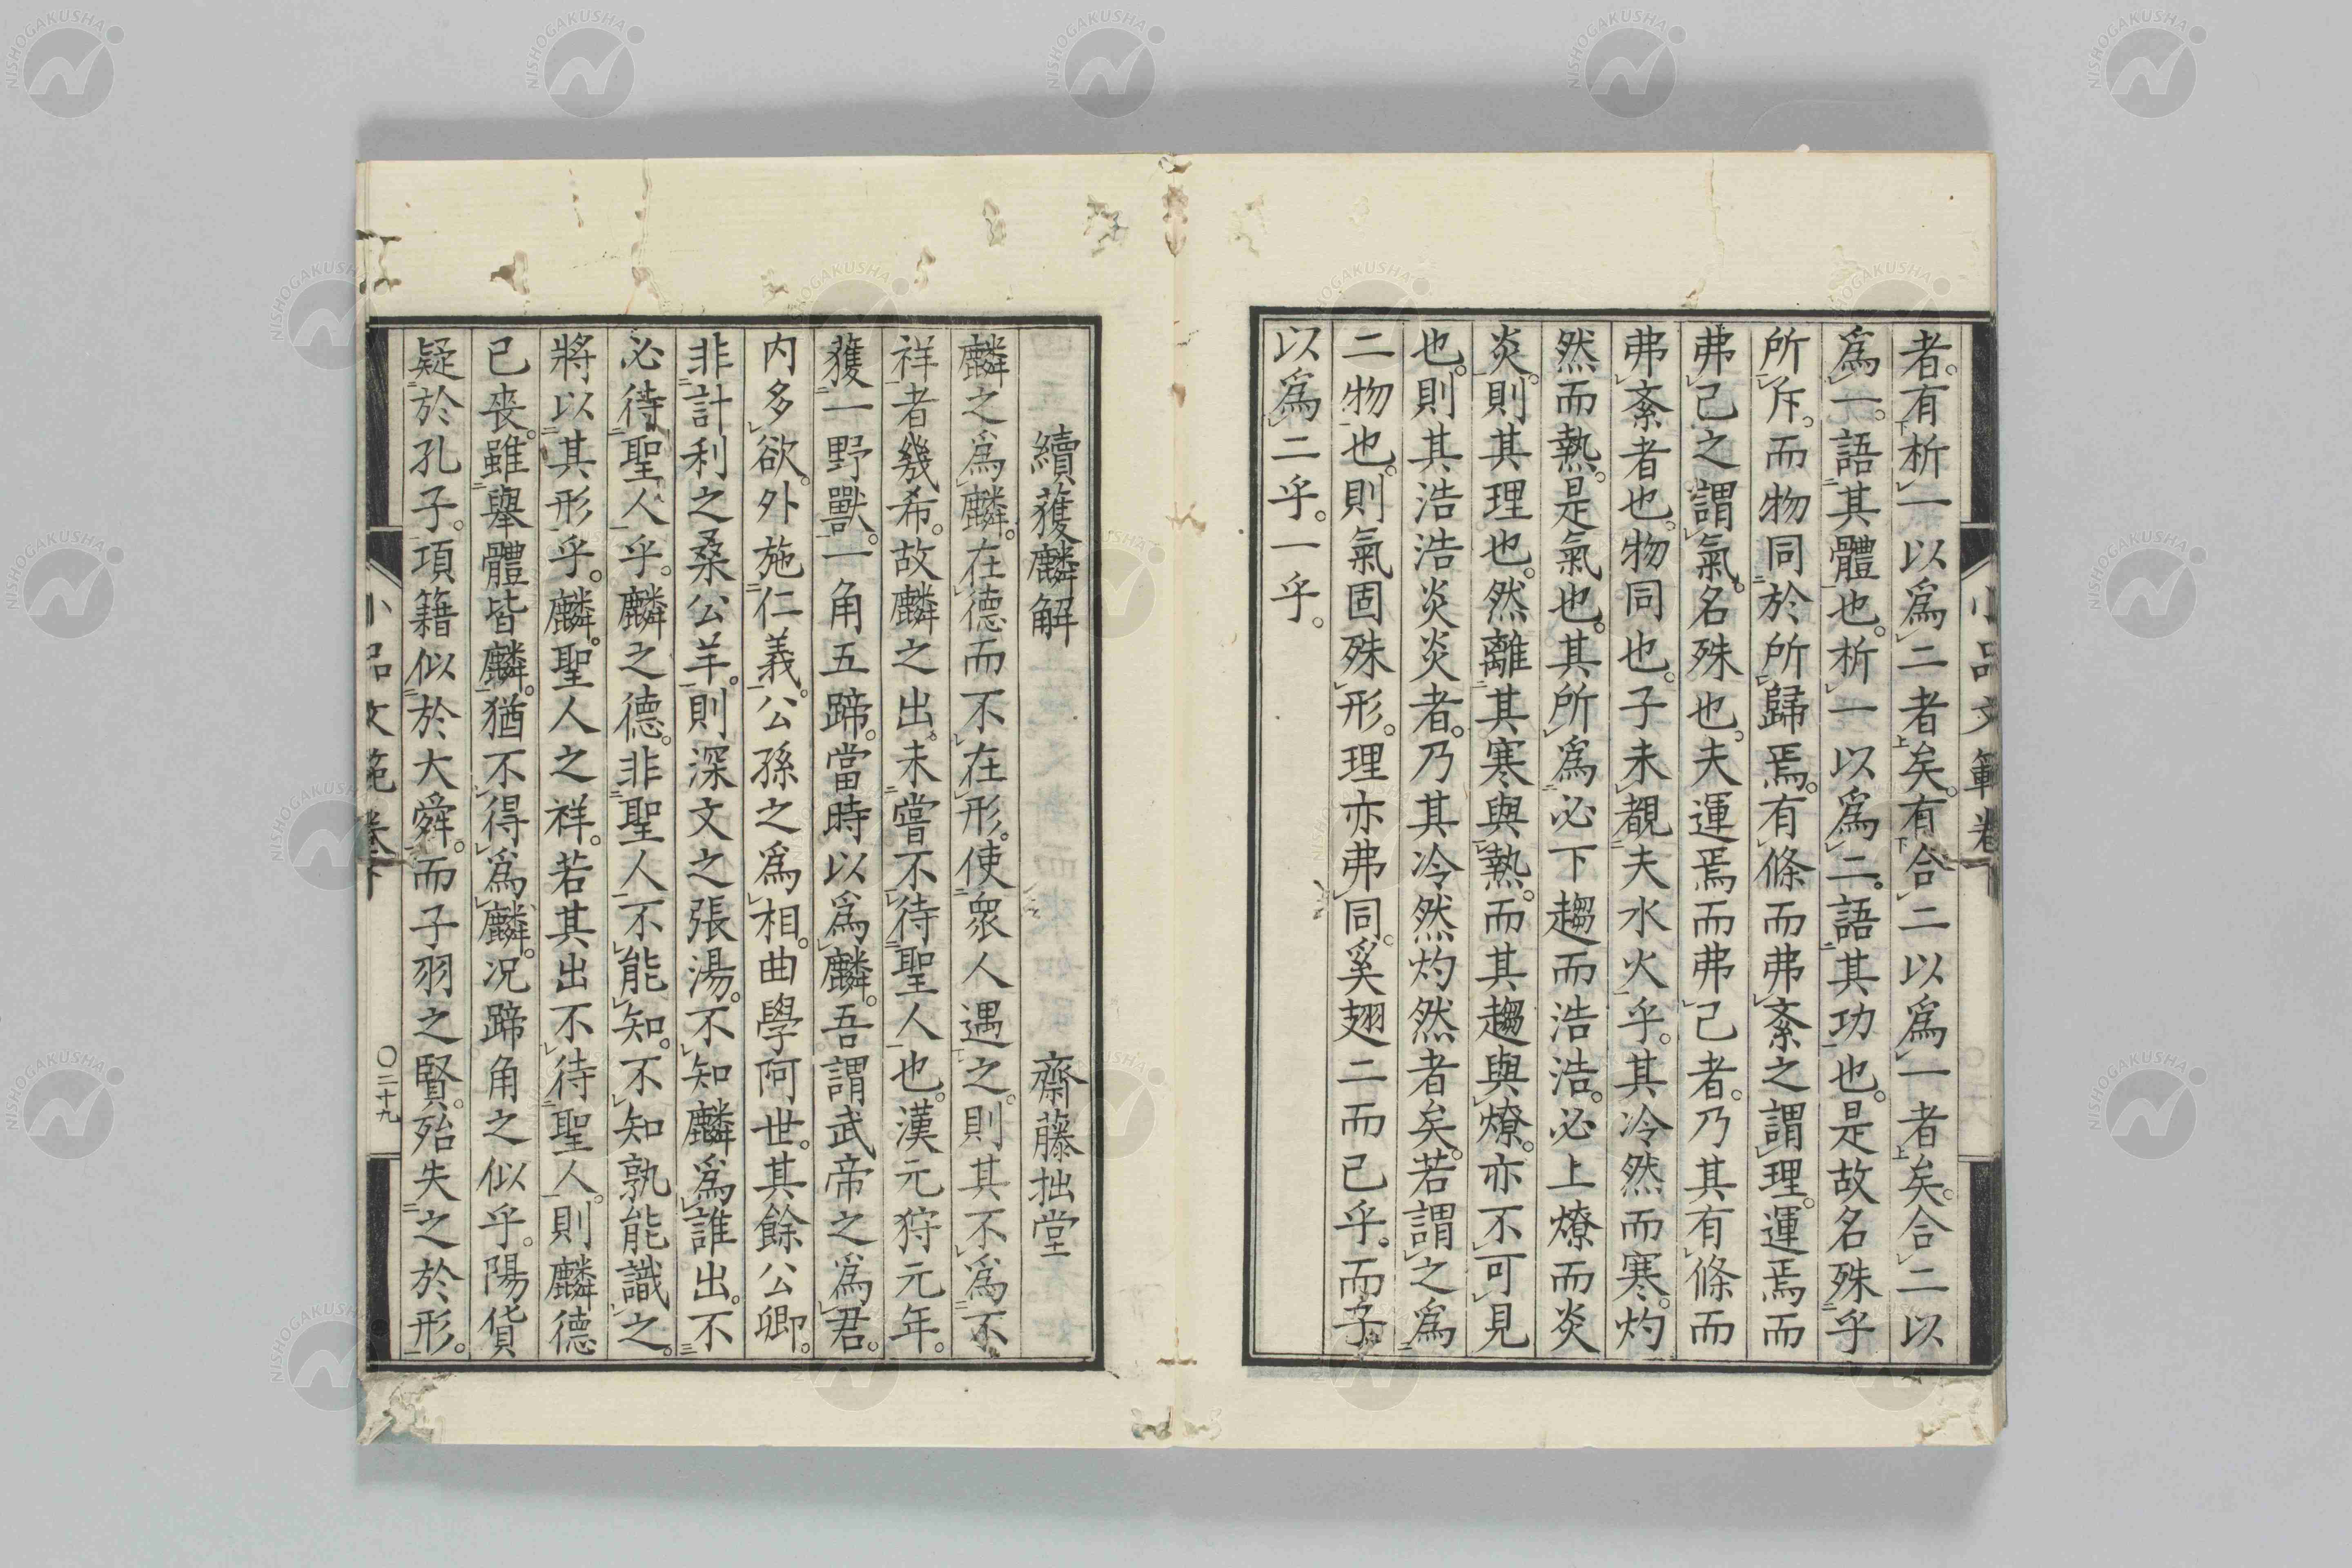 者。有析一以爲二者矣。有合二以爲一者矣。合二以
爲一。語其體也。析一以爲二。語其功也。是故名殊乎
所斥。而物同於所歸焉。有條而弗紊之謂理。運焉而
弗已之謂氣。名殊也。夫運焉而弗已者。乃其有條而
弗紊者也。物同也。子未覩夫水火乎。其冷然而寒。灼
然而熱。是氣也。其所爲必下趨而浩浩。必上燎而炎
炎。則其理也。然離其寒與熱。而其趨與燎。亦不可見
也。則其浩浩炎炎者。乃其冷然灼然者矣。若謂之爲
二物也。則氣固殊形。理亦弗同。奚翅二而已乎。而子
以爲二乎。一乎。
小品文範卷下
續獲麟解 齋藤拙堂
麟之爲麟。在德而不在形。使衆人遇之。則其不爲不
祥者幾希。故麟之出。未嘗不待聖人也。漢元狩元年。
獲一野獸。一角五蹄。當時以爲麟。吾謂武帝之爲君。
内多欲。外施仁義。公孫之爲相。曲學阿世。其餘公卿。
非計利之桑公羊。則深文之張湯。不知麟爲誰出。不
必待聖人乎。麟之德。非聖人不能知。不知孰能識之。
將以其形乎。麟。聖人之祥。若其出不待聖人。則麟德
已喪。雖擧體皆麟。猶不得爲麟。况蹄角之似乎。陽貨
疑於孔子。項籍似於大舜。而子羽之賢。殆失之於形。
小品文範卷下 〇二十九
NISHOGAKUSHA